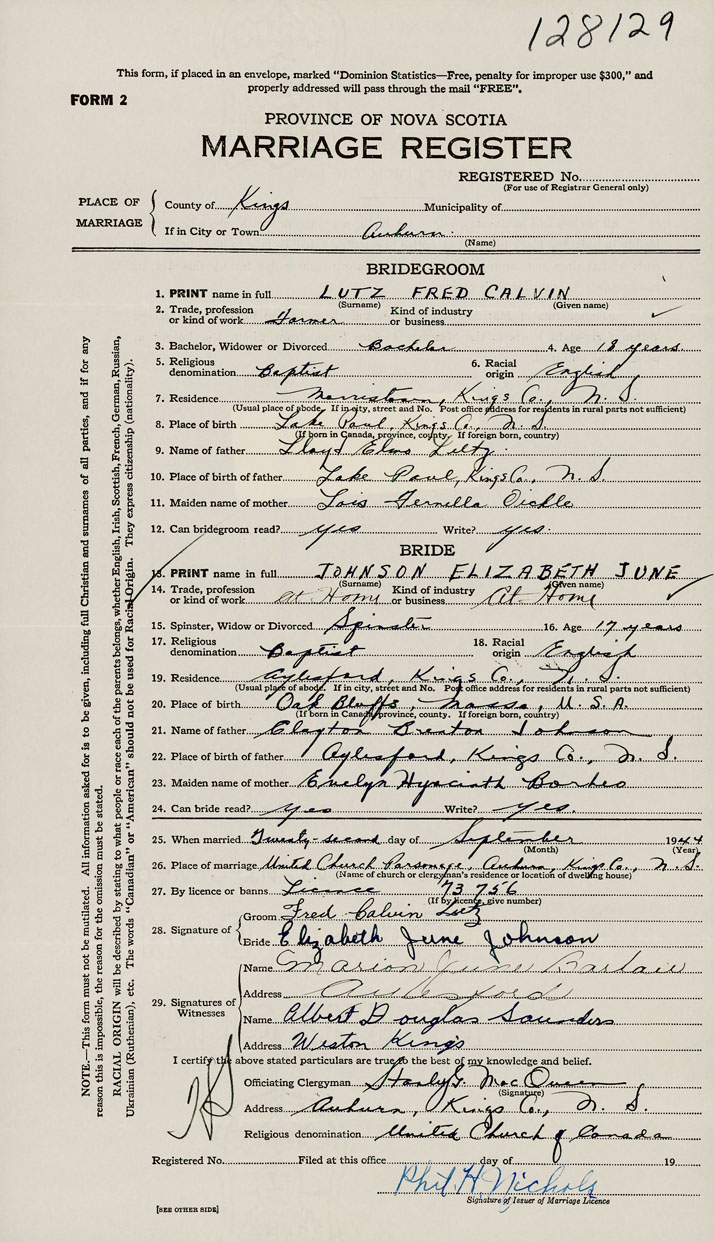 128129
This form, if placed in an envelope, marked "Dominion Statistics—Free, penalty for improper use $300," and
properly addressed will pass through the mail "FREE".
FORM 2
PROVINCE OF NOVA SCOTIA
MARRIAGE REGISTER
REGISTERED No.
(For use of Registrar General only)
PLACE OF MARRIAGE
County of Kings Municipality of
If in City or Town Auburn.
(Name)
BRIDEGROOM
1. PRINT name in full LUTZ FRED CALVIN
(Surname) (Given name)
2. Trade, profession or kind of work Farmer Kind of industry or business
3. Bachelor, Widower or Divorced Bachelor 4. Age 18 years.
5. Religious denomination Baptist 6. Racial origin English
7. Residence Morristown, Kings Co., N. S.
(Usual place of abode. If in city, street and No. Post office address for residents in rural parts not sufficient)
8. Place of birth Lake Paul, Kings Co., N. S.
(If born in Canada, province, county. If foreign born, country)
9. Name of father Lloyd Elmo Lutz.
10. Place of birth of father Lake Paul, Kings Co., N. S.
11. Maiden name of mother Lois Oickle
12. Can bridegroom read? yes Write? yes.
BRIDE
13. PRINT name in full JOHNSON ELIZABETH JUNE
(Surname) (Given name)
14. Trade, profession or kind of work At Home Kind of industry or business At Home
15. Spinster, Widow or Divorced Spinster 16. Age 17 years
17. Religious denomination Baptist 18. Racial origin English
19. Residence Aylesford, Kings Co., N. S.
(Usual place of abode. If in city, street and No. Post office address for residents in rural parts not sufficient)
20. Place of birth Oak Bluffs, Mass., U. S. A.
(If born in Canada, province, county. If foreign born, country)
21. Name of father Clayton Johnson
22. Place of birth of father Aylesford, Kings Co., N. S.
23. Maiden name of mother Evelyn Hyacinth
24. Can bride read? yes Write? yes.
25. When married Twenty-second day of September 1944
(Month) (Year)
26. Place of marriage United Church Parsonage, Auburn, Kings Co., N. S.
(Name of church or clergyman's residence or location of dwelling house)
27. By licence or banns Licence 73756
(If by licence, give number)
28. Signature of
Groom Fred Calvin Lutz
Bride Elizabeth June Johnson
29. Signatures of Witnesses
Name Marion June
Address
Name Albert Douglas Saunders
Address Weston Kings
I certify the above stated particulars are true to the best of my knowledge and belief.
Officiating Clergyman G. MacQueen
(Signature)
Address Auburn, Kings Co., N. S.
Religious denomination United Church of Canada
Registered No. Filed at this office day of 19
Phil. H. Nichols
Signature of Issuer of Marriage Licence
[SEE OTHER SIDE]
NOTE.—This form must not be mutilated. All information asked for is to be given, including full Christian and surnames of all parties, and if for any
reason this is impossible, the reason for the omission must be stated.
RACIAL ORIGIN will be described by stating to what people or race each of the parents belongs, whether English, Irish, Scottish, French, German, Russian,
Ukrainian (Ruthenian), etc. The words "Canadian" or "American" should not be used for Racial Origin. They express citizenship (nationality).